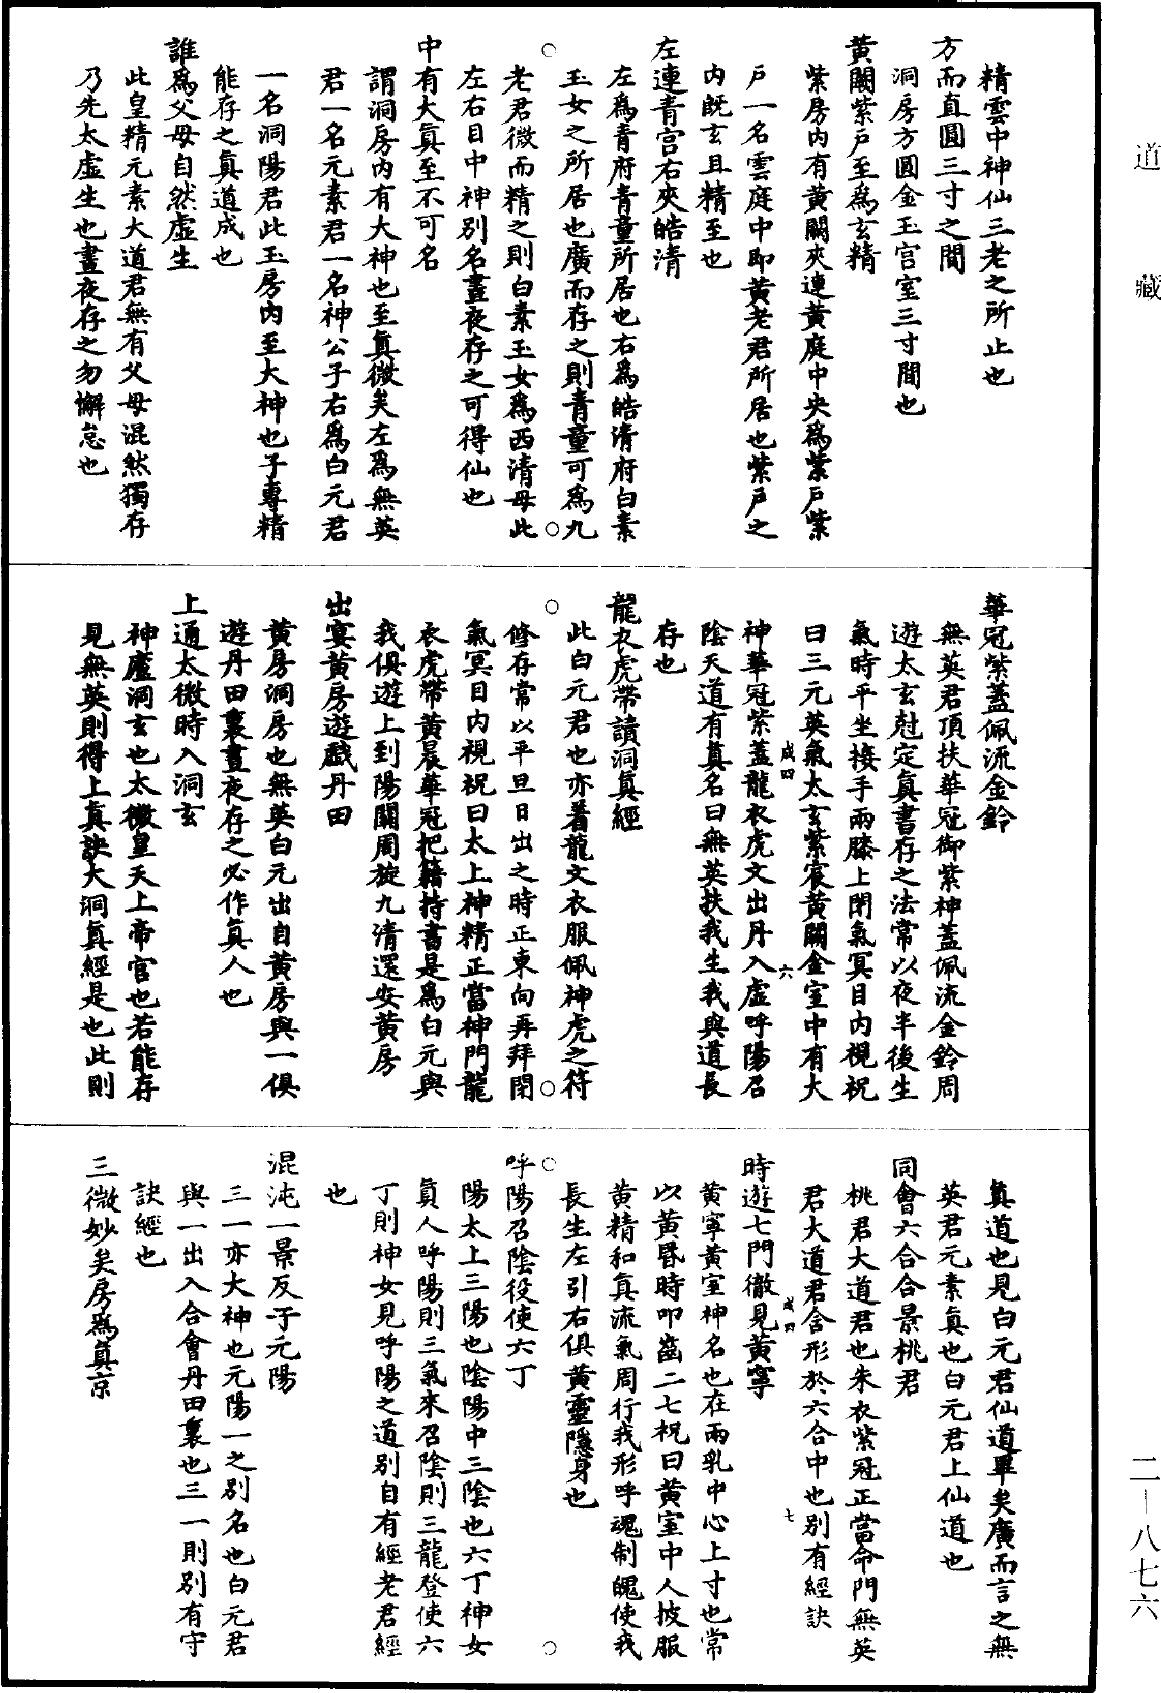 道藏
精雲中神仙三老之所止也
方而直圓三寸之間
洞房方圓金玉宫室三寸間也
黃闕紫戶至爲玄精
紫房内有黃闕夾連黃庭中央爲紫戶紫
戶一名雲庭中即黃老君所居也紫戶之
内既玄且精至也
左連青宫右夾皓清
左爲青府青童所居也右爲皓清府白素
玉女之所居也廣而存之則青童可爲九
老君微而精之則白素玉女爲西清母此
左右目中神別名晝夜存之可得仙也
中有大眞至不可名
謂洞房内有大神也至眞微矣左爲無英
君一名元素君一名神公子右爲白元君
一名洞陽君此玉房内至大神也子專精
能存之眞道成也
誰爲父母自然虛生
此皇精元素大道君無有父母混然獨存
乃先太虛生也晝夜存之勿懈怠也
華冠紫蓋佩流金鈴
無英君頂扶華冠御紫神蓋佩流金鈴周
遊太玄尅定眞書存之法常以夜半後生
氣時平坐接手兩膝上閉氣冥目内視祝
曰三元英氣太玄紫宸黃闕金室中有大
神華冠紫蓋龍衣虎文出丹入虛呼陽召
咸四
六
陰天道有眞名曰無英扶我生我與道長
存也
龍衣虎帶讀洞眞經
此白元君也亦着龍文衣服佩神虎之符
修存常以平旦日出之時正東向再拜閉
氣冥目内視祝曰太上神精正當神門龍
衣虎帶黃晨華冠把籍持書是爲白元與
我俱遊上到陽關周旋九清還安黃房
出宴黃房遊戲丹田
黃房洞房也無英白元出自黃房與一俱
遊丹田裏晝夜存之必作眞人也
上通太微時入洞玄
神廬洞玄也太微皇天上帝官也若能存
見無英則得上眞訣大洞眞經是也此則
眞道也見白元君仙道畢矣廣而言之無
英君元素眞也白元君上仙道也
同會六合合景桃君
桃君大道君也朱衣紫冠正當命門無英
君大道君含形於六合中也別有經訣
咸四
七
時遊七門徹見黃寧
黃寧黃室神名也在兩乳中心上寸也常
以黃昬時叩齒二七祝曰黃室中人披服
黃精和眞流氣周行我形呼魂制魄使我
長生左引右俱黃靈隱身也
呼陽召陰役使六丁
陽太上三陽也陰陽中三陰也六丁神女
眞人呼陽則三氣來召陰則三龍登使六
丁則神女見呼陽之道別自有經老君經
也
混沌一景反于元陽
三一亦大神也元陽一之別名也白元君
與一出入合會丹田裏也三一則別有守
訣經也
三微妙矣房爲眞京
二—八七六